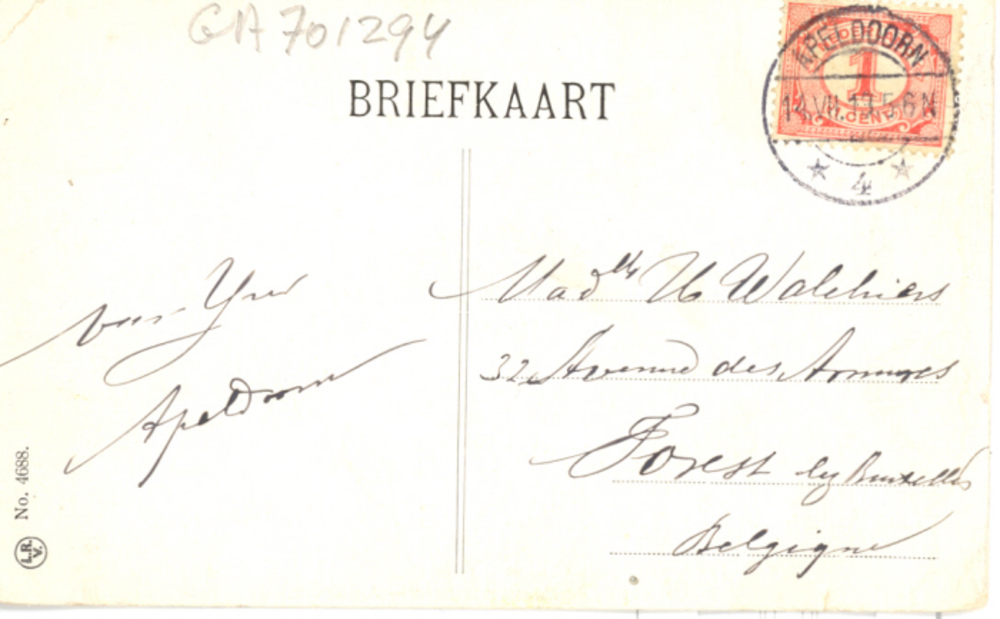 GA 701294
BRIEFKAART
APELDOORN
14.VII.13 5-6 N
1
CENT
4
van Yvo
Apeldoorn
Madlle W Walchiers
32 Avenue des Armures
Forest by Bruxelles
Belgique
No. 4688.
L.R.
V.